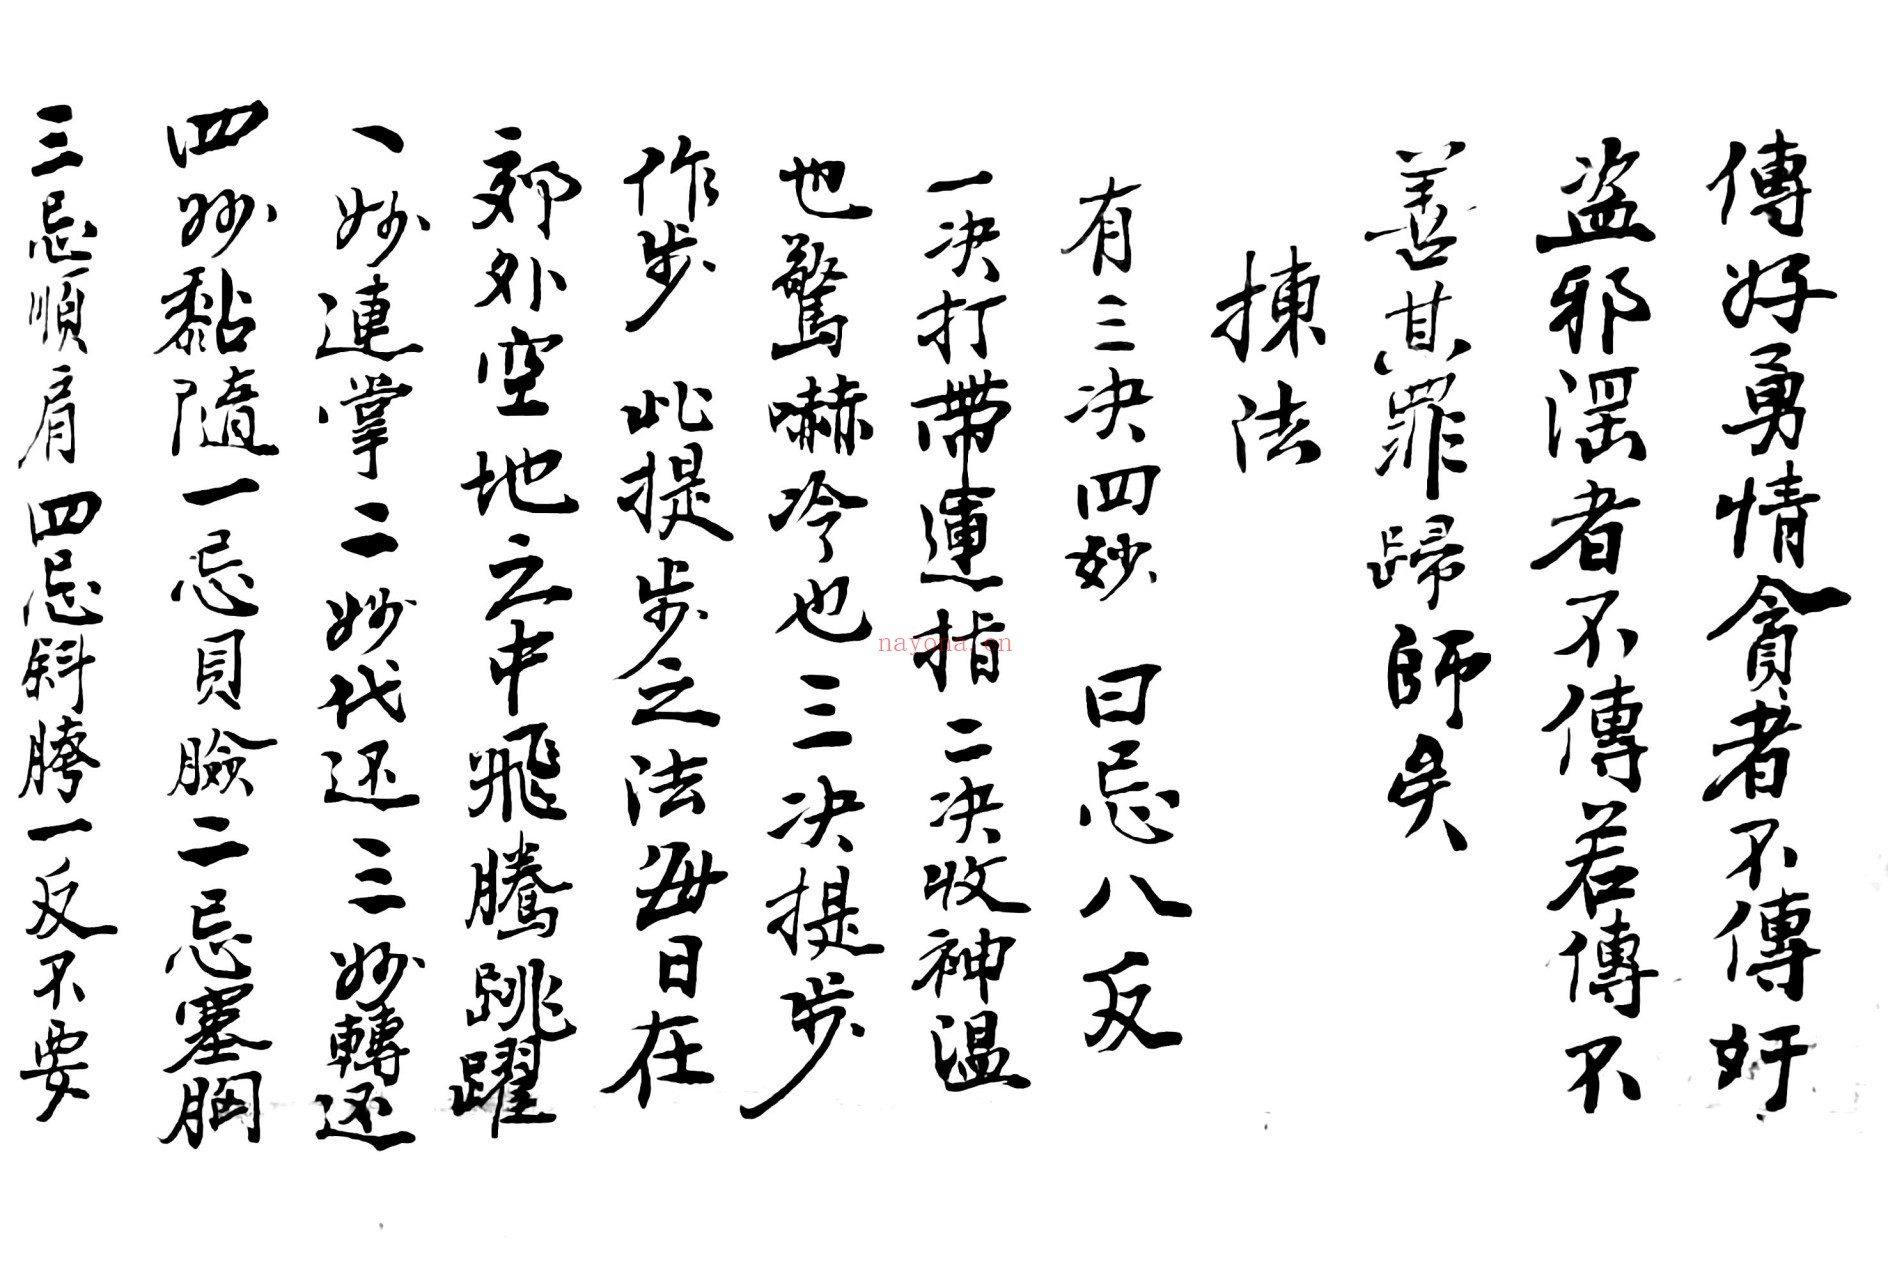 傳好勇情貪者不傳奸
盜邪滛者不傳若傳不
善其罪歸師矣
揀法
有三决四妙 曰忌八反
一决打帶運指二决收神溫
也驚嚇冷也三决提步
作步 此提步之法每日在
郊外空地之中飛騰跳躍
一妙連掌二妙代还三妙轉还
四妙黏隨一忌貝臉二忌塞胸
三忌順肩四忌斜胯一反不要
nayona.cn